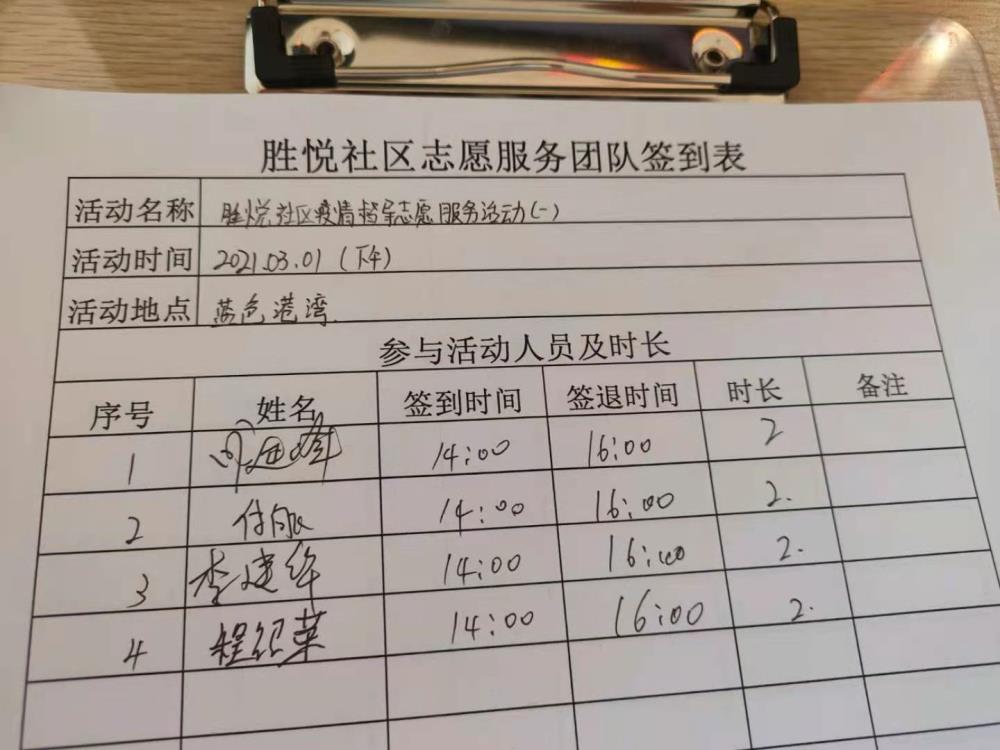 胜悦社区志愿服务团队签到表
活动名称 胜悦社区疫情督导志愿服务活动(一)
活动时间 2021.03.01（下午）
活动地点 蓝色港湾
参与活动人员及时长
序号 姓名 签到时间 签退时间 时长 备注
1 14:00 16:00 2
2 14:00 16:00 2.
3 李建华 14:00 16:00 2.
4 14:00 16:00 2.